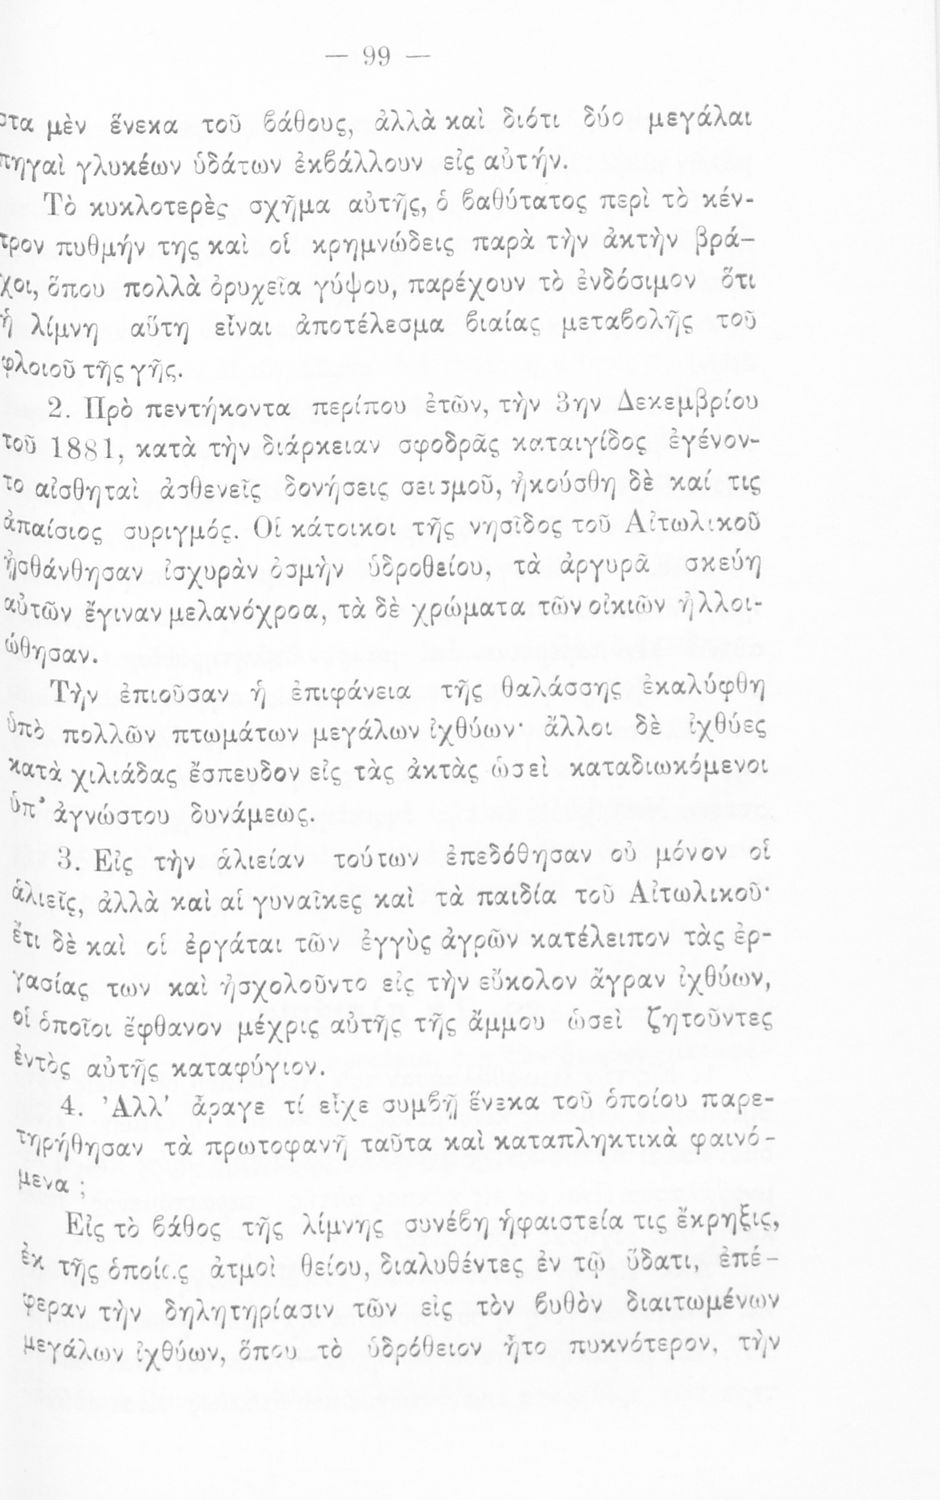 — 99 —
στα μὲν ἕνεκα τοῦ βάθους, ἀλλὰ καὶ διότι δύο μεγάλαι
πηγαὶ γλυκέων ὑδάτων ἐκβάλλουν εἰς αὐτήν.
Τὸ κυκλοτερὲς σχῆμα αὐτῆς, ὁ βαθύτατος περὶ τὸ κέν-
τρον πυθμήν της καὶ οἱ κρημνώδεις παρὰ τὴν ἀκτὴν βρά-
χοι, ὅπου πολλὰ ὀρυχεῖα γύψου, παρέχουν τὸ ἐνδόσιμον ὅτι
ἡ λίμνη αὕτη εἶναι ἀποτέλεσμα βιαίας μεταβολῆς τοῦ
φλοιοῦ τῆς γῆς.
2. Πρὸ πεντήκοντα περίπου ἐτῶν, τὴν 3ην Δεκεμβρίου
τοῦ 1881, κατὰ τὴν διάρκειαν σφοδρᾶς καταιγίδος ἐγένον-
το αἰσθηταὶ ἀσθενεῖς δονήσεις σεισμοῦ, ἠκούσθη δὲ καί τις
ἀπαίσιος συριγμός. Οἱ κάτοικοι τῆς νησῖδος τοῦ Αἰτωλικοῦ
ᾐσθάνθησαν ἰσχυρὰν ὀσμὴν ὑδροθείου, τὰ ἀργυρᾶ σκεύη
αὐτῶν ἔγιναν μελανόχροα, τὰ δὲ χρώματα τῶν οἰκιῶν ἠλλοι-
ώθησαν.
Τὴν ἐπιοῦσαν ἡ ἐπιφάνεια τῆς θαλάσσης ἐκαλύφθη
ὑπὸ πολλῶν πτωμάτων μεγάλων ἰχθύων· ἄλλοι δὲ ἰχθύες
κατὰ χιλιάδας ἔσπευδον εἰς τὰς ἀκτὰς ὡσεὶ καταδιωκόμενοι
ὑπ' ἀγνώστου δυνάμεως.
3. Εἰς τὴν ἁλιείαν τούτων ἐπεδόθησαν οὐ μόνον οἱ
ἁλιεῖς, ἀλλὰ καὶ αἱ γυναῖκες καὶ τὰ παιδία τοῦ Αἰτωλικοῦ·
ἔτι δὲ καὶ οἱ ἐργάται τῶν ἐγγὺς ἀγρῶν κατέλειπον τὰς ἐρ-
γασίας των καὶ ἠσχολοῦντο εἰς τὴν εὔκολον ἄγραν ἰχθύων,
οἱ ὁποῖοι ἔφθανον μέχρις αὐτῆς τῆς ἄμμου ὡσεὶ ζητοῦντες
ἐντὸς αὐτῆς καταφύγιον.
4. Ἀλλ' ἆραγε τί εἶχε συμβῇ ἕνεκα τοῦ ὁποίου παρε-
τηρήθησαν τὰ πρωτοφανῆ ταῦτα καὶ καταπληκτικὰ φαινό-
μενα ;
Εἰς τὸ βάθος τῆς λίμνης συνέβη ἡφαιστεία τις ἔκρηξις,
ἐκ τῆς ὁποίας ἀτμοὶ θείου, διαλυθέντες ἐν τῷ ὕδατι, ἐπέ-
φεραν τὴν δηλητηρίασιν τῶν εἰς τὸν βυθὸν διαιτωμένων
μεγάλων ἰχθύων, ὅπου τὸ ὑδρόθειον ἦτο πυκνότερον, τὴν